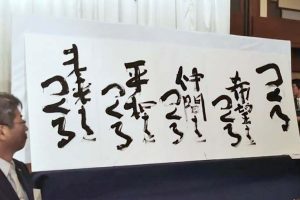 つくる
希望をつくる
仲間をつくる
平和をつくる
未来をつくる